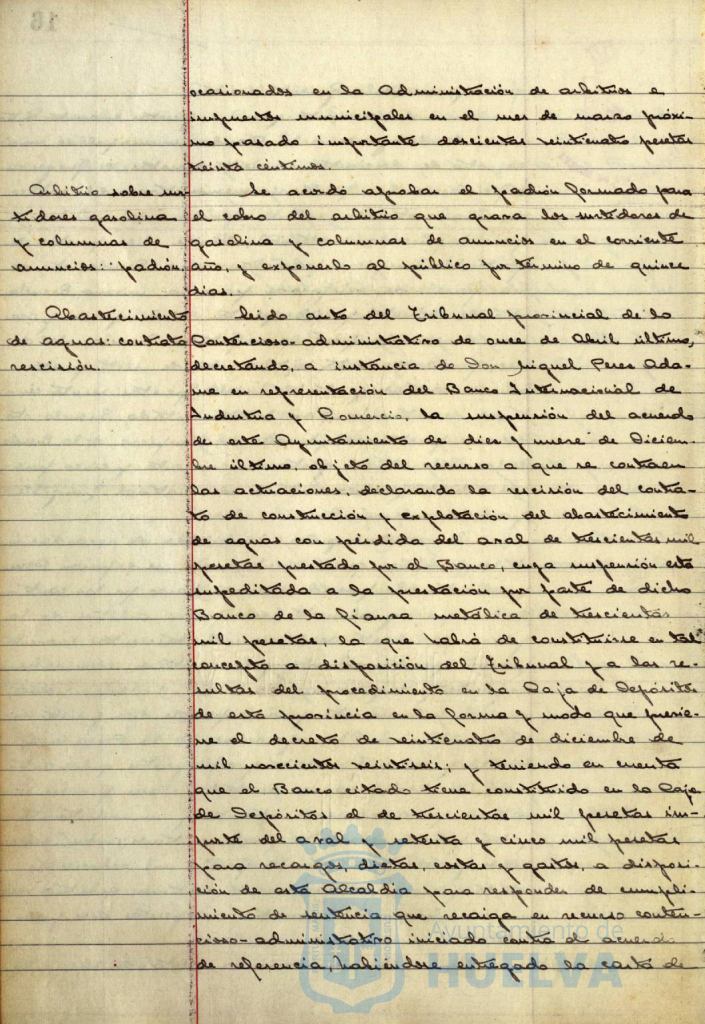 ocasionados en la Administración de arbitrios e
impuestos municipales en el mes de marzo próxi-
mo pasado importante doscientas veinticuatro pesetas
treinta céntimos.
Arbitrio sobre sur-
tidores gasolina
y columnas de
anuncios: padrón.
Se acordó aprobar el padrón formado para
el cobro del arbitrio que grava los surtidores de
gasolina y columnas de anuncios en el corriente
año, y exponerlo al público por término de quince
días.
Abastecimiento
de aguas: contrato
rescisión.
Leido auto del Tribunal provincial de lo
Contencioso-administrativo de once de Abril último,
decretando, a instancia de Don Miguel Peres Ada-
me en representación del Banco Internacional de
Industria y Comercio, la suspensión del acuerdo
de este Ayuntamiento de diez y nueve de Diciem-
bre último, objeto del recurso a que se contraen
las actuaciones, declarando la rescisión del contra-
to de construcción y explotación del abastecimiento
de aguas con pérdida del aval de trescientas mil
pesetas prestado por el Banco, cuya suspensión está
supeditada a la prestación por parte de dicho
Banco de la fianza metálica de trescientas
mil pesetas, la que habrá de constituirse en tal
concepto a disposición del Tribunal y a las re-
sultas del procedimiento en la Caja de Depósitos
de esta provincia en la forma y modo que previe-
ne el decreto de veinticuatro de diciembre de
mil novecientos veintiseis; y teniendo en cuenta
que el Banco citado tiene constituido en la Caja
de Depósitos el de trescientas mil pesetas im-
porte del aval y setenta y cinco mil pesetas
para recargos, dietas, costas y gastos, a disposi-
ción de esta Alcaldía para responder de cumpli-
miento de sentencia que recaiga en recurso conten-
cioso-administrativo iniciado contra el acuerdo
de referencia, habiéndose entregado la carta de
16
Ayuntamiento de
HUELVA